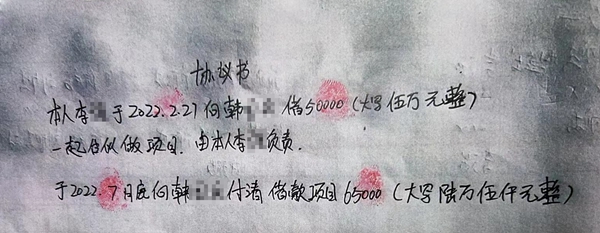 协议书
本人李 于2022.2.21向韩 借50000(大写伍万元整)
一起合伙做项目.由本人李 负责.
于2022.7月底向韩 付清借款项目65000(大写陆万伍仟元整)